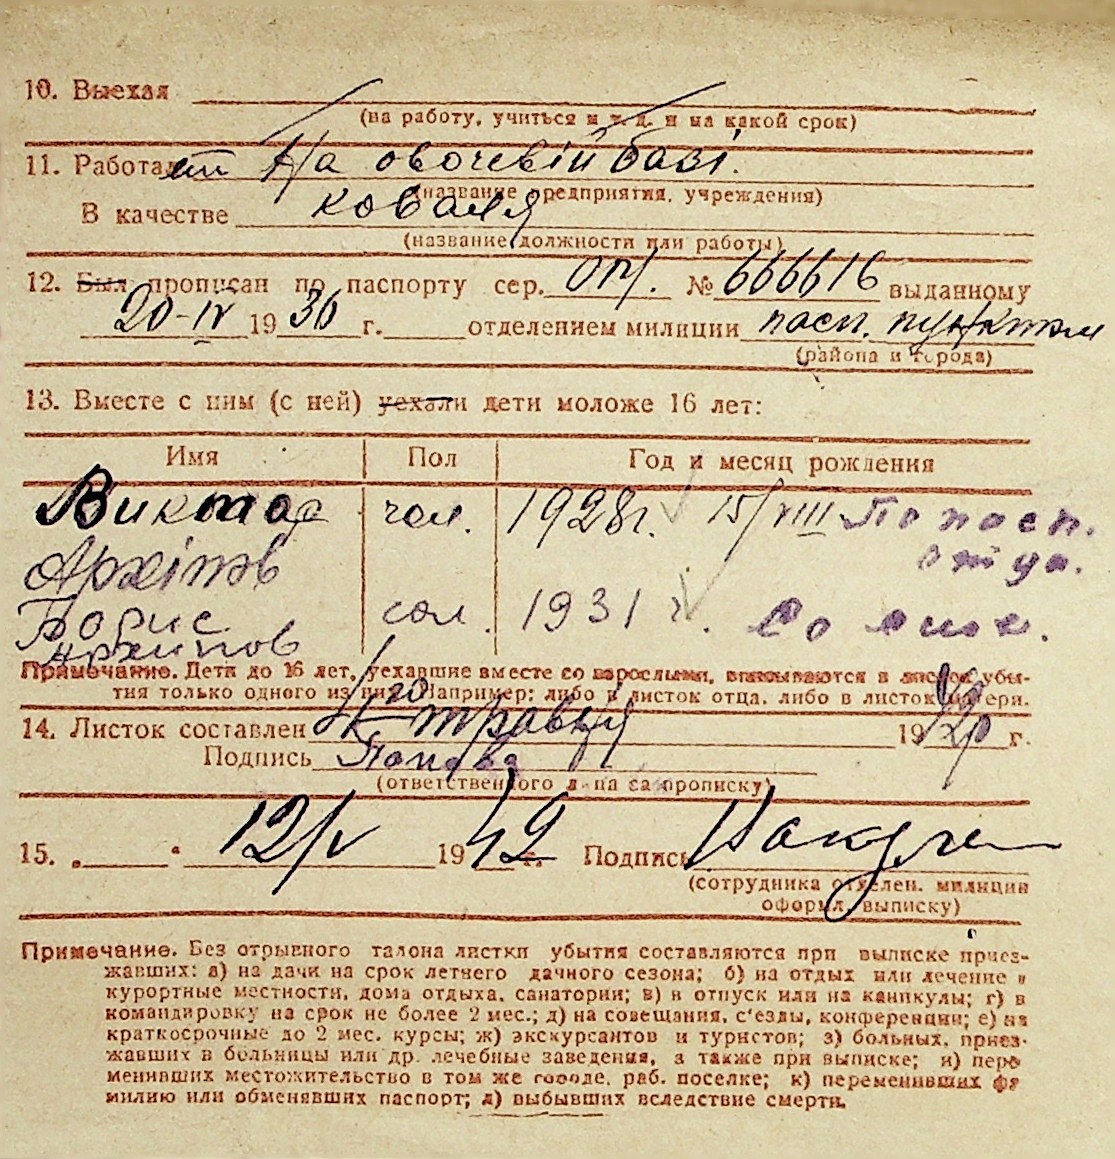 10. Выехал
(на работу, учиться и т. д. и на какой срок)
11. Работает На овочевій базі.
(название предприятия, учреждения)
В качестве коваля
(название должности или работы)
12. Был прописан по паспорту сер. № 666616 выданному
20-IV 1936 г. отделением милиции пасп. пунктом
(района и города)
13. Вместе с ним (с ней) уехали дети моложе 16 лет:
Имя Пол Год и месяц рождения
Виктор чол. 1928г. 15/VIII По пасп.
Архіпов отца.
Борис чол. 1931 г.
Архипов
Примечание. Дети до 16 лет, уехавшие вместе со взрослыми, вписываются в листок убы-
тия только одного из них. Например: либо в листок отца, либо в листок матери.
14. Листок составлен травня 19 г.
Подпись Попова
(ответственного лица за прописку)
15. „ “ 12/V 1942 г. Подпись
(сотрудника отделен. милиции
оформл. выписку)
Примечание. Без отрывного талона листки убытия составляются при выписке приез-
жавших: а) на дачи на срок летнего дачного сезона; б) на отдых или лечение в
курортные местности, дома отдыха, санатории; в) в отпуск или на каникулы; г) в
командировку на срок не более 2 мес.; д) на совещания, с'езды, конференции; е) на
краткосрочные до 2 мес. курсы; ж) экскурсантов и туристов; з) больных, приез-
жавших в больницы или др. лечебные заведения, а также при выписке; и) пере
менивших местожительство в том же городе, раб. поселке; к) переменивших фа
милию или обменявших паспорт; л) выбывших вследствие смерти.